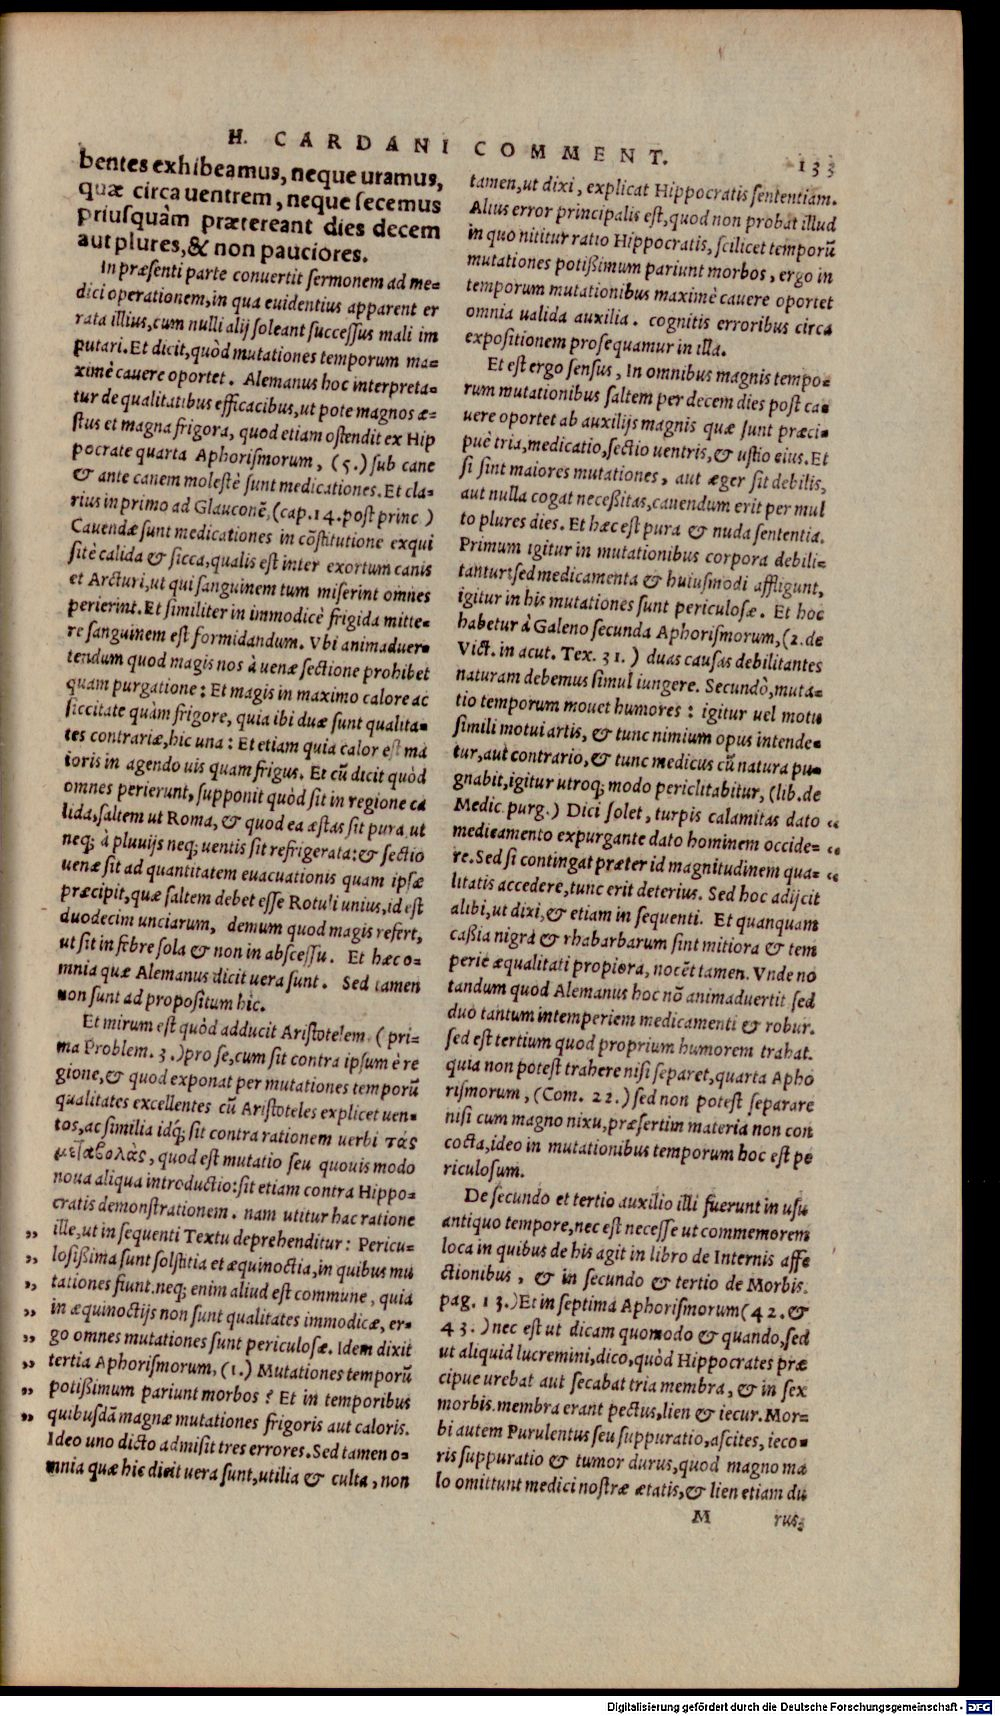 H. CARDANI COMMENT. 133
bentes exhibeamus, neque uramus,
quæ circa uentrem, neque secemus
priusquàm prætereant dies decem
aut plures, & non pauciores.
In præsenti parte conuertit sermonem ad me-
dici operationem, in qua euidentius apparent er
rata illius, cum nulli alij soleant successus mali im
putari. Et dicit, quòd mutationes temporum ma-
ximè cauere oportet. Alemanus hoc interpreta-
tur de qualitatibus efficacibus, ut pote magnos æ-
stus et magna frigora, quod etiam ostendit ex Hip
pocrate quarta Aphorismorum, (5.) sub cane
& ante canem molestè sunt medicationes. Et cla-
rius in primo ad Glauconẽ, (cap. 14. post princ )
Cauendæ sunt medicationes in cõstitutione exqui
sitè calida & sicca, qualis est inter exortum canis
et Arcturi, ut qui sanguinem tum miserint omnes
perierint. Et similiter in immodicè frigida mitte-
re sanguinem est formidandum. Vbi animaduer-
tendum quod magis nos à uenæ sectione prohibet
quam purgatione: Et magis in maximo calore ac
siccitate quàm frigore, quia ibi duæ sunt qualita-
tes contrariæ, hic una: Et etiam quia calor est ma
ioris in agendo uis quam frigus. Et cũ dicit quòd
omnes perierunt, supponit quòd sit in regione ca
lida, saltem ut Roma, & quod ea æstas sit pura ut
neq; à pluuijs neq; uentis sit refrigerata: & sectio
uenæ sit ad quantitatem euacuationis quam ipsæ
præcipit, quæ saltem debet esse Rotuli unius, id est
duodecim unciarum, demum quod magis refert,
ut sit in febre sola & non in abscessu. Et hæc o-
mnia quæ Alemanus dicit uera sunt. Sed tamen
non sunt ad propositum hic.
Et mirum est quòd adducit Aristotelem (pri-
ma Problem. 3.) pro se, cum sit contra ipsum è re
gione, & quod exponat per mutationes temporũ
qualitates excellentes cũ Aristoteles explicet uen-
tos, ac similia idq; sit contra rationem uerbi τὰς
μεταβολὰς, quod est mutatio seu quouis modo
noua aliqua introductio: sit etiam contra Hippo-
cratis demonstrationem. nam utitur hac ratione
„ ille, ut in sequenti Textu deprehenditur: Pericu-
„ losißima sunt solstitia et æquinoctia, in quibus mu
„ tationes fiunt. neq; enim aliud est commune, quia
„ in æquinoctijs non sunt qualitates immodicæ, er-
„ go omnes mutationes sunt periculosæ. Idem dixit
„ tertia Aphorismorum, (1.) Mutationes temporũ
„ potißimum pariunt morbos? Et in temporibus
„ quibusdã magnæ mutationes frigoris aut caloris.
Ideo uno dicto admisit tres errores. Sed tamen o-
mnia quæ hic dicit uera sunt, utilia & culta, non
tamen, ut dixi, explicat Hippocratis sententiam.
Alius error principalis est, quod non probat illud
in quo nititur ratio Hippocratis, scilicet temporũ
mutationes potißimum pariunt morbos, ergo in
temporum mutationibus maximè cauere oportet
omnia ualida auxilia. cognitis erroribus circa
expositionem prosequamur in illa.
Et est ergo sensus, In omnibus magnis tempo-
rum mutationibus saltem per decem dies post ca-
uere oportet ab auxilijs magnis quæ sunt præci-
puè tria, medicatio, sectio uentris, & ustio eius. Et
si sint maiores mutationes, aut æger sit debilis,
aut nulla cogat neceßitas, cauendum erit per mul
to plures dies. Et hæc est pura & nuda sententia.
Primum igitur in mutationibus corpora debili-
tantur: sed medicamenta & huiusmodi affligunt,
igitur in his mutationes sunt periculosæ. Et hoc
habetur à Galeno secunda Aphorismorum, (2. de
Vict. in acut. Tex. 31. ) duas causas debilitantes
naturam debemus simul iungere. Secundò, muta-
tio temporum mouet humores: igitur uel motu
simili motui artis, & tunc nimium opus intende-
tur, aut contrario, & tunc medicus cũ natura pu-
gnabit, igitur utroq; modo periclitabitur, (lib. de
Medic purg.) Dici solet, turpis calamitas dato „
medicamento expurgante dato hominem occide- „
re. Sed si contingat præter id magnitudinem qua- „
litatis accedere, tunc erit deterius. Sed hoc adijcit
alibi, ut dixi, & etiam in sequenti. Et quanquam
caßia nigra & rhabarbarum sint mitiora & tem
perie æqualitati propiora, nocẽt tamen. Vnde no
tandum quod Alemanus hoc nõ animaduertit sed
duo tantum intemperiem medicamenti & robur.
sed est tertium quod proprium humorem trahat.
quia non potest trahere nisi separet, quarta Apho
rismorum, (Com. 22.) sed non potest separare
nisi cum magno nixu, præsertim materia non con
cocta, ideo in mutationibus temporum hoc est pe
riculosum.
De secundo et tertio auxilio illi fuerunt in usu
antiquo tempore, nec est necesse ut commemorem
loca in quibus de his agit in libro de Internis affe
ctionibus, & in secundo & tertio de Morbis.
pag. 13.) Et in septima Aphorismorum (42. &
43. ) nec est ut dicam quomodo & quando, sed
ut aliquid lucremini, dico, quòd Hippocrates præ
cipue urebat aut secabat tria membra, & in sex
morbis. membra erant pectus, lien & iecur. Mor-
bi autem Purulentus seu suppuratio, ascites, ieco-
ris suppuratio & tumor durus, quod magno ma
lo omittunt medici nostræ ætatis, & lien etiam du
M rus,
Digitalisierung gefördert durch die Deutsche Forschungsgemeinschaft - DFG